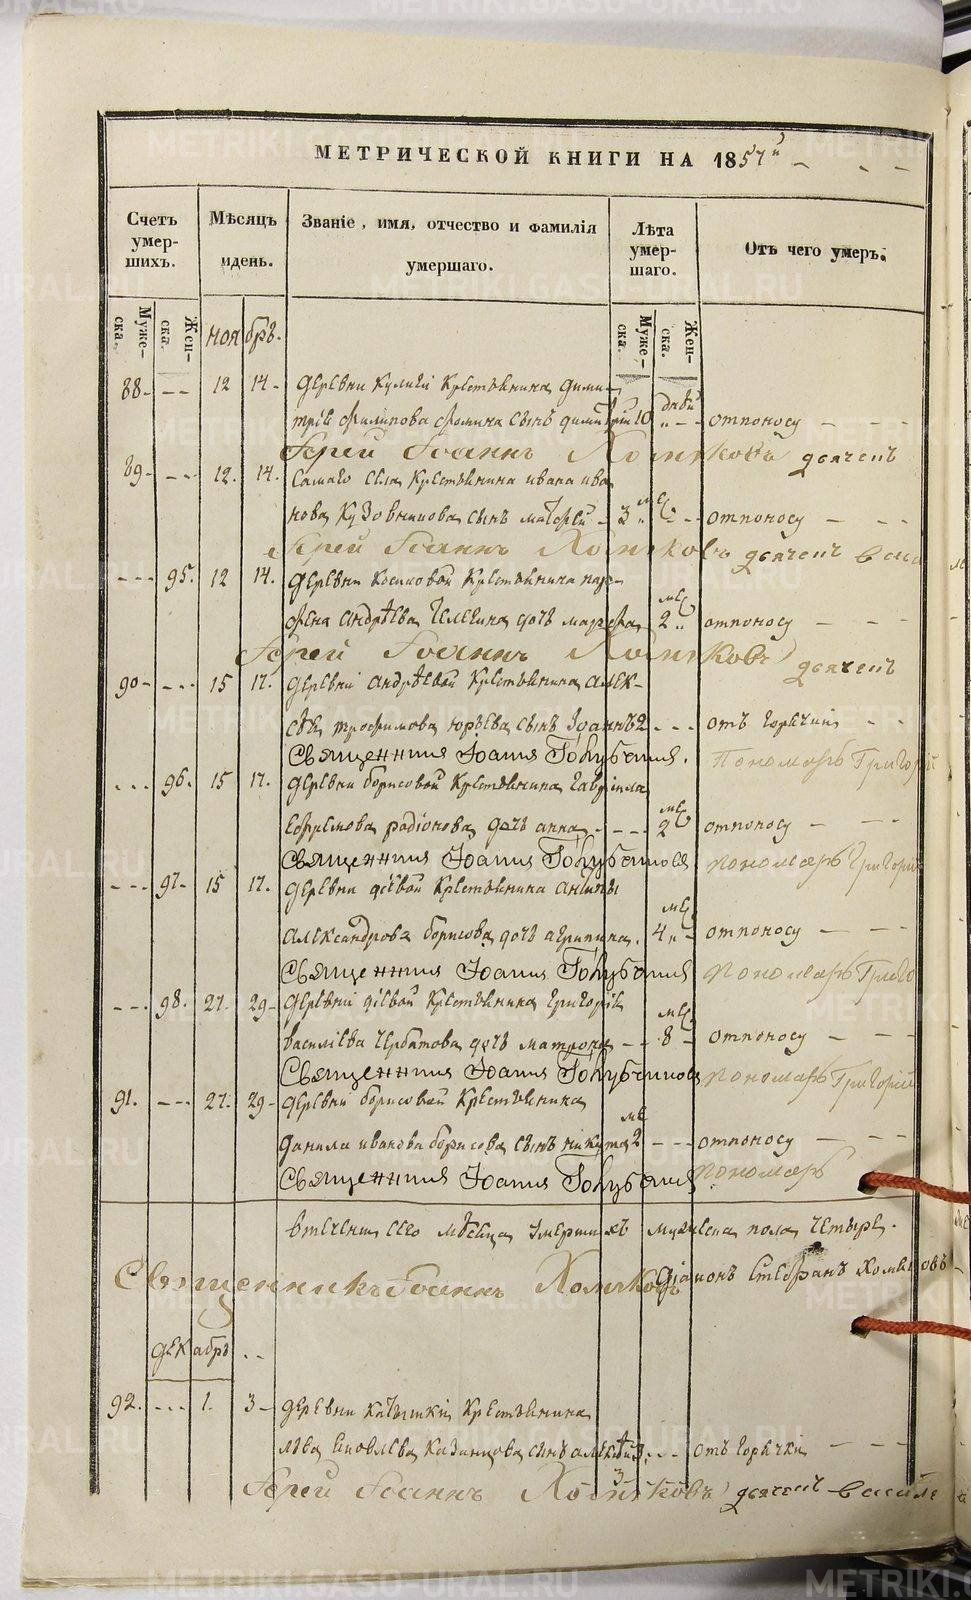 МЕТРИЧЕСКОЙ КНИГИ НА 1857й
Счетъ умер- шихъ.
Мѣсяцъ идень.
Званіе, имя, отчество и фамилія умершаго.
Лѣта умер- шаго.
Отъ чего умеръ.
Муже- ска.
Жен- ска.
ноя бръ.
Муже- ска.
Жен- ска.
88 - - - 12 14 - деревни Крестьянина Дими-
трія Филипова Фомина сынъ Димитрій 10 дней отпоносу
Іерей Іоаннъ Хомяковъ дьячепъ
89 - - - 12. 14. Самаго села Крестьянина Ивана Ива
нова Кузовникова сынъ Матфей - 3 мс отпоносу
Іерей Іоаннъ Хомяковъ дьячепъ
- - - 95. 12 14. деревни Косиковой Крестьянина пар-
фена Андрѣева дочь Марфа 2 мс отпоносу
Іерей Іоаннъ Хомяковъ дьячепъ
90 - - - 15 17. деревни Андрѣевой Крестьянина Алек-
сѣя Трофимова Юрьева сынъ Іоаннъ 2 - - - отъ горячки
Священникъ Іоаннъ Голубчиковъ. Пономарь Григорій
- - - 96. 15 17. деревни борисовой Крестьянина Гавріила
Ефремова Радіонова дочь Анна - - - 2 мс отпоносу
Священникъ Іоаннъ Голубчиковъ пономарь Григорій
- - - 97. 15 17. деревни дѣвой Крестьянина Антипы
Александрова борисова дочь Агрипина. 4 мс отпоносу
Священникъ Іоаннъ Голубчиковъ пономарь
- - - 98. 27. 29 - деревни дѣвой Крестьянина Григорія
Василіева дочь Матрона - - 8 мс отпоносу
Священникъ Іоаннъ Голубчиковъ пономарь Григорій
91. - - - 27. 29 - деревни борисовой Крестьянина
Данила Иванова борисова сынъ Никита 2 мс - - - отпоносу
Священникъ Іоаннъ Голубчиковъ пономарь
втеченіи сего мѣсяца умершихъ мужеска пола четыре.
Священникъ Іоаннъ Хомяковъ Діаконъ Стефанъ Хомяковъ
дек абрь . .
92. - - - 1. 3 - деревни Крестьянина
Льва Яковлева Казанцова сынъ Алексѣй 3. - - отъ горячки
3
Іерей Іоаннъ Хомяковъ дьячепъ